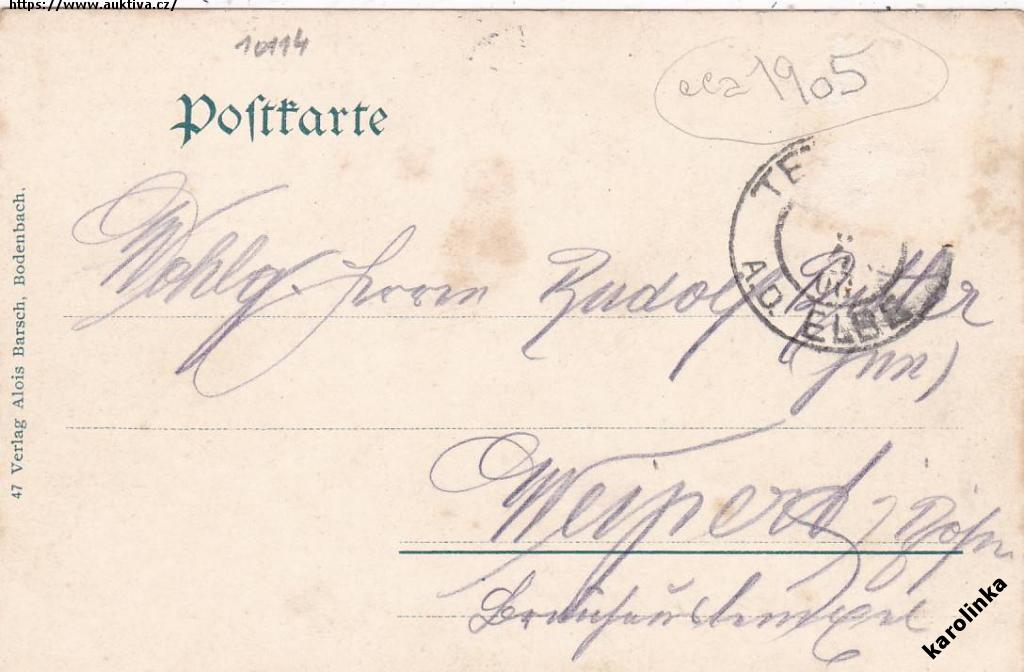 https://www.auktiva.cz/
10114
cca 1905
Postkarte
TE
A.D. ELBE
Wohlg. Herrn Rudolf Butter
(jun)
Weipert, Böhm.
47 Verlag Alois Barsch, Bodenbach.
karolinka